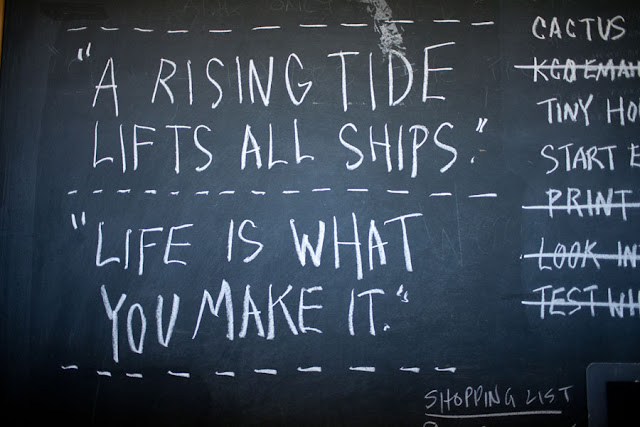 "A RISING TIDE
LIFTS ALL SHIPS."
"LIFE IS WHAT
YOU MAKE IT."
CACTUS
TINY
START
PRINT
LOOK IN
TEST
SHOPPING LIST